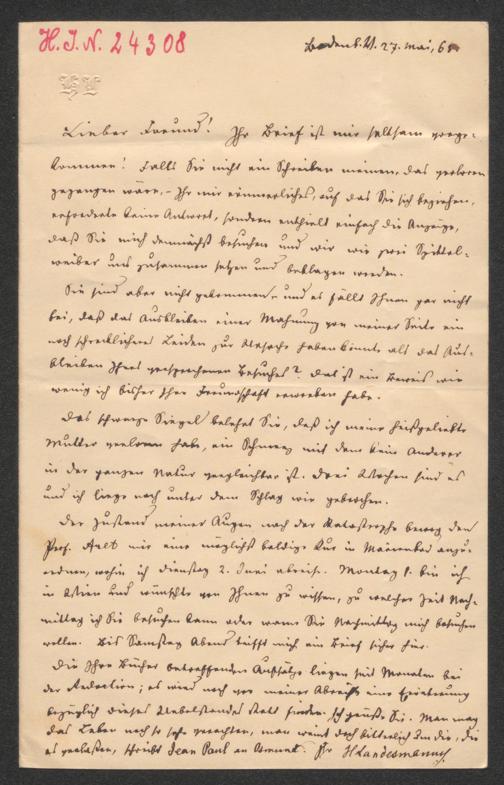 H.I.N. 24308
Baden b. W. 27. Mai, 6
Lieber Freund! Ihr Brief ist mir seltsam vorge-
kommen! Falls Sie nicht ein Schreiben meinen, das verloren
gegangen wäre, – Ihr mir erinnerliches, auf das Sie sich beziehen,
erforderte keine Antwort, sondern enthielt einfach die Anzeige,
daß Sie mich demnächst besuchen und wir wie zwei Spittel-
weiber uns zusammen setzen und beklagen werden.
Sie sind aber nicht gekommen, und es fällt Ihnen gar nicht
bei, daß das Ausbleiben einer Mahnung von meiner Seite ein
noch schrecklicheres Leiden zur Ursache haben könnte als das Aus-
bleiben Ihres versprochenen Besuches? Das ist ein Beweis wie
wenig ich bisher Ihre Freundschaft erworben habe.
Das schwarze Siegel belehrt Sie, daß ich meine heißgeliebte
Mutter verloren habe, ein Schmerz mit dem kein Anderer
in der ganzen Natur vergleichbar ist. Drei Wochen sind es
und ich liege noch unter dem Schlag wie gebrochen.
Der Zustand meiner Augen nach der Katastrophe bewog den
Prof. Arlt mir eine möglichst baldige Kur in Marienbad anzu-
ordnen, wohin ich Dienstag 2. Juni abreise. Montag 1. bin ich
in Wien und wünschte von Ihnen zu wissen, zu welcher Zeit Nach-
mittag ich Sie besuchen kann oder wann Sie Nachmittag mich besuchen
wollen. Bis Samstag Abend trifft mich ein Brief sicher hier.
Die Ihre Bücher betreffenden Aufsätze liegen seit Monaten bei
der Redaction; es wird noch vor meiner Abreise eine Erörterung
bezüglich dieses Uebelstandes statt finden. Ich grüße Sie. Man mag
das Leben noch so sehr verachten, man weint doch bitterlich um die, die
es verlassen, schreibt Jean Paul an Ihr HLandesmann